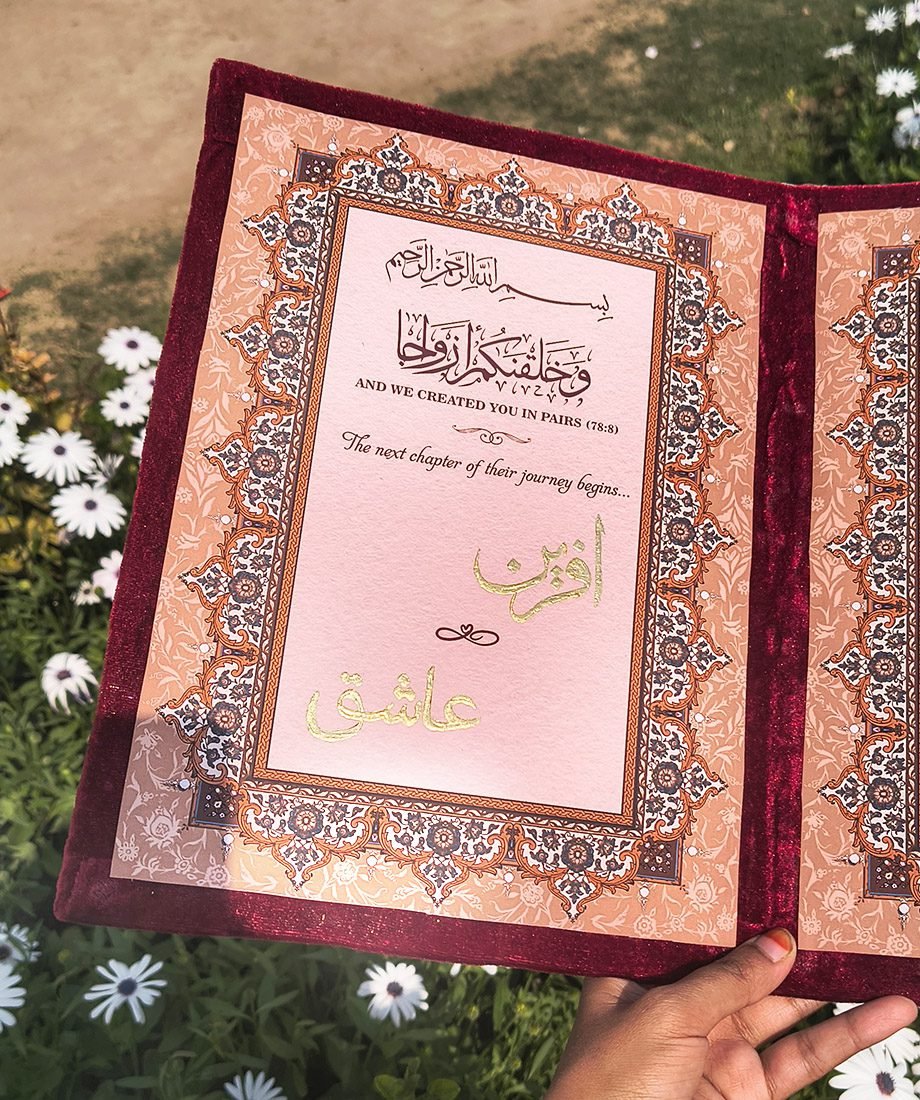 بسم الله الرحمن الرحيم
وخلقنكم أزواجا
AND WE CREATED YOU IN PAIRS (78:8)
The next chapter of their journey begins...
افرین
عاشق